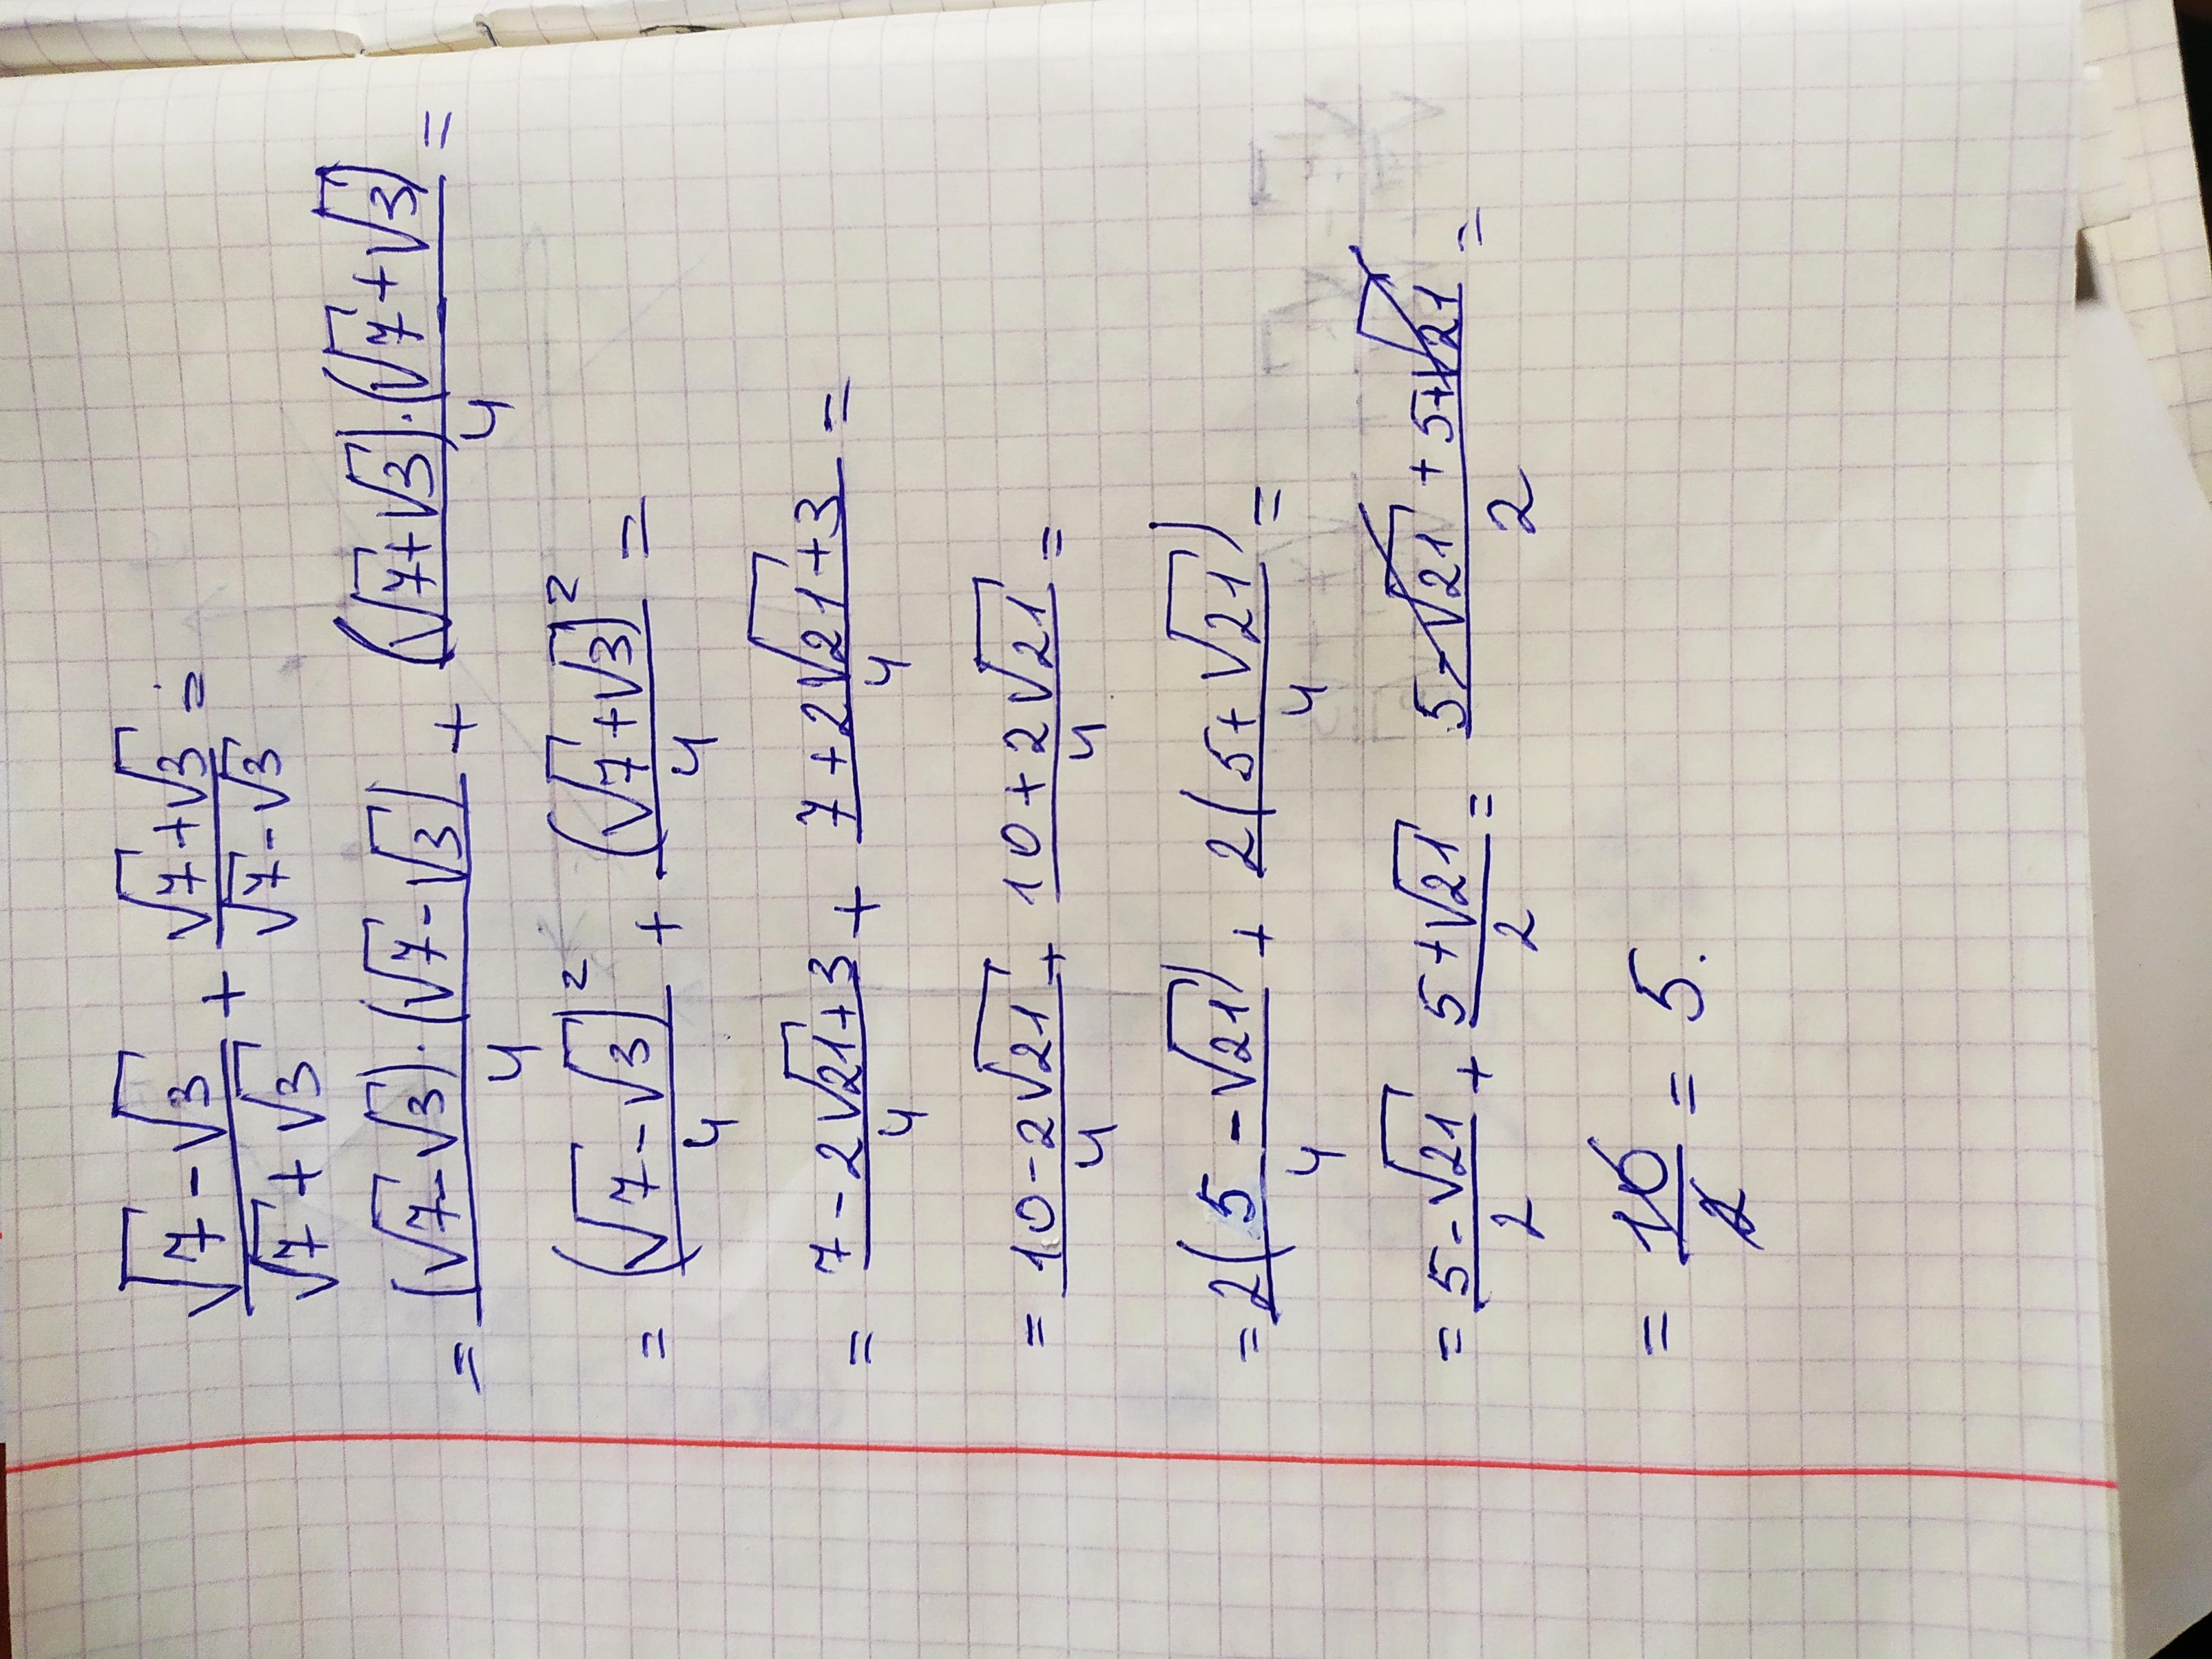 (√7 - √3)/(√7 + √3) + (√7 + √3)/(√7 - √3) =
= ((√7 - √3) · (√7 - √3))/4 + ((√7 + √3) · (√7 + √3))/4 =
= (√7 - √3)²/4 + (√7 + √3)²/4 =
= (7 - 2√21 + 3)/4 + (7 + 2√21 + 3)/4 =
= (10 - 2√21)/4 + (10 + 2√21)/4 =
= 2(5 - √21)/4 + 2(5 + √21)/4 =
= (5 - √21)/2 + (5 + √21)/2 = (5 - √21 + 5 + √21)/2 =
= 10/2 = 5.